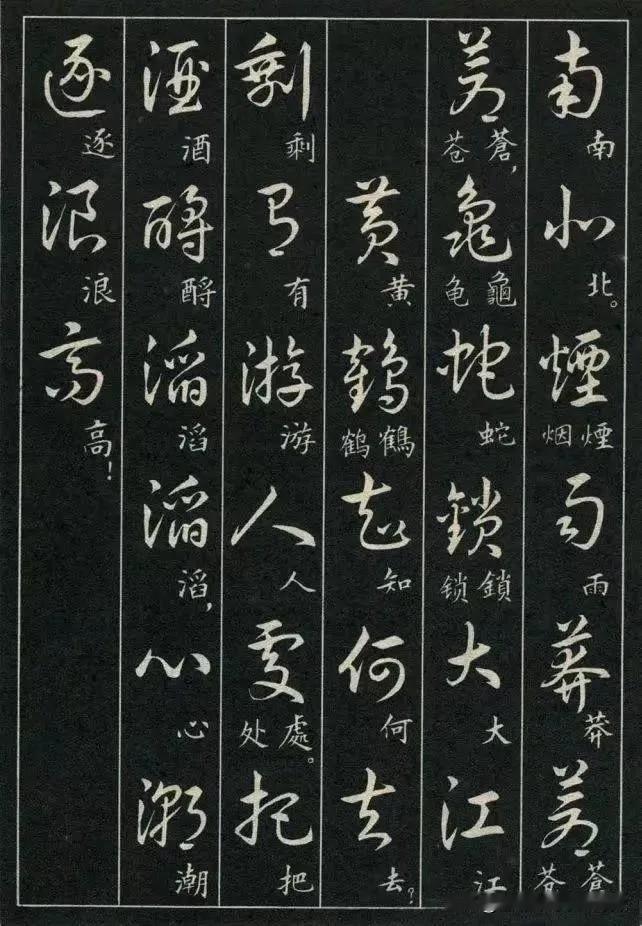 南南北北。煙煙烟雨雨莽莽蒼蒼苍
蒼蒼,苍龜龜龟蛇蛇鎖鎖锁大大江江
黄黄鶴鶴鹤知知何何去去?
剩剩有有游游人人處處。处把把
酒酒酹酹滔滔滔滔,心心潮潮
逐逐浪浪高高!